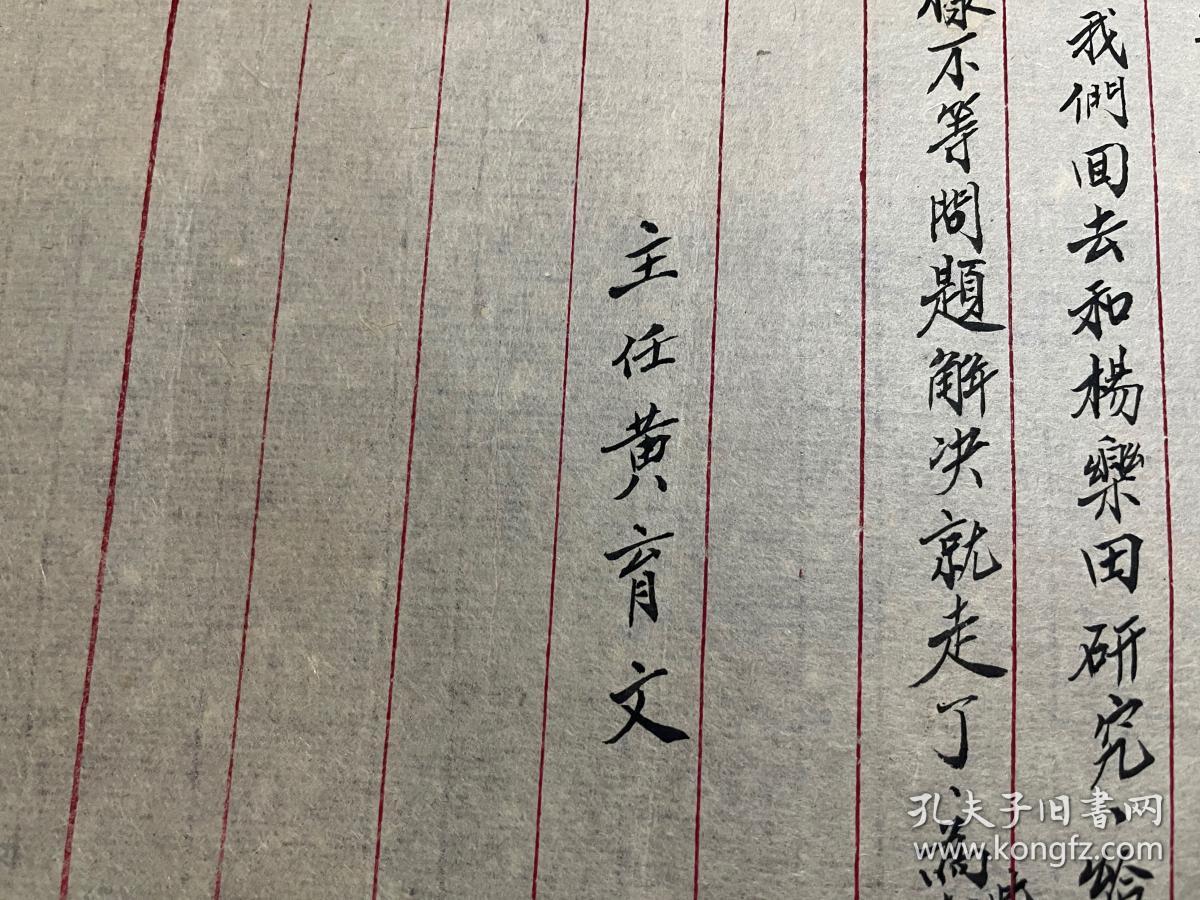 我們回去和楊樂田研究、給
不等問題解決就走了、為
主任黄育文
孔夫子旧書网
www.kongfz.com